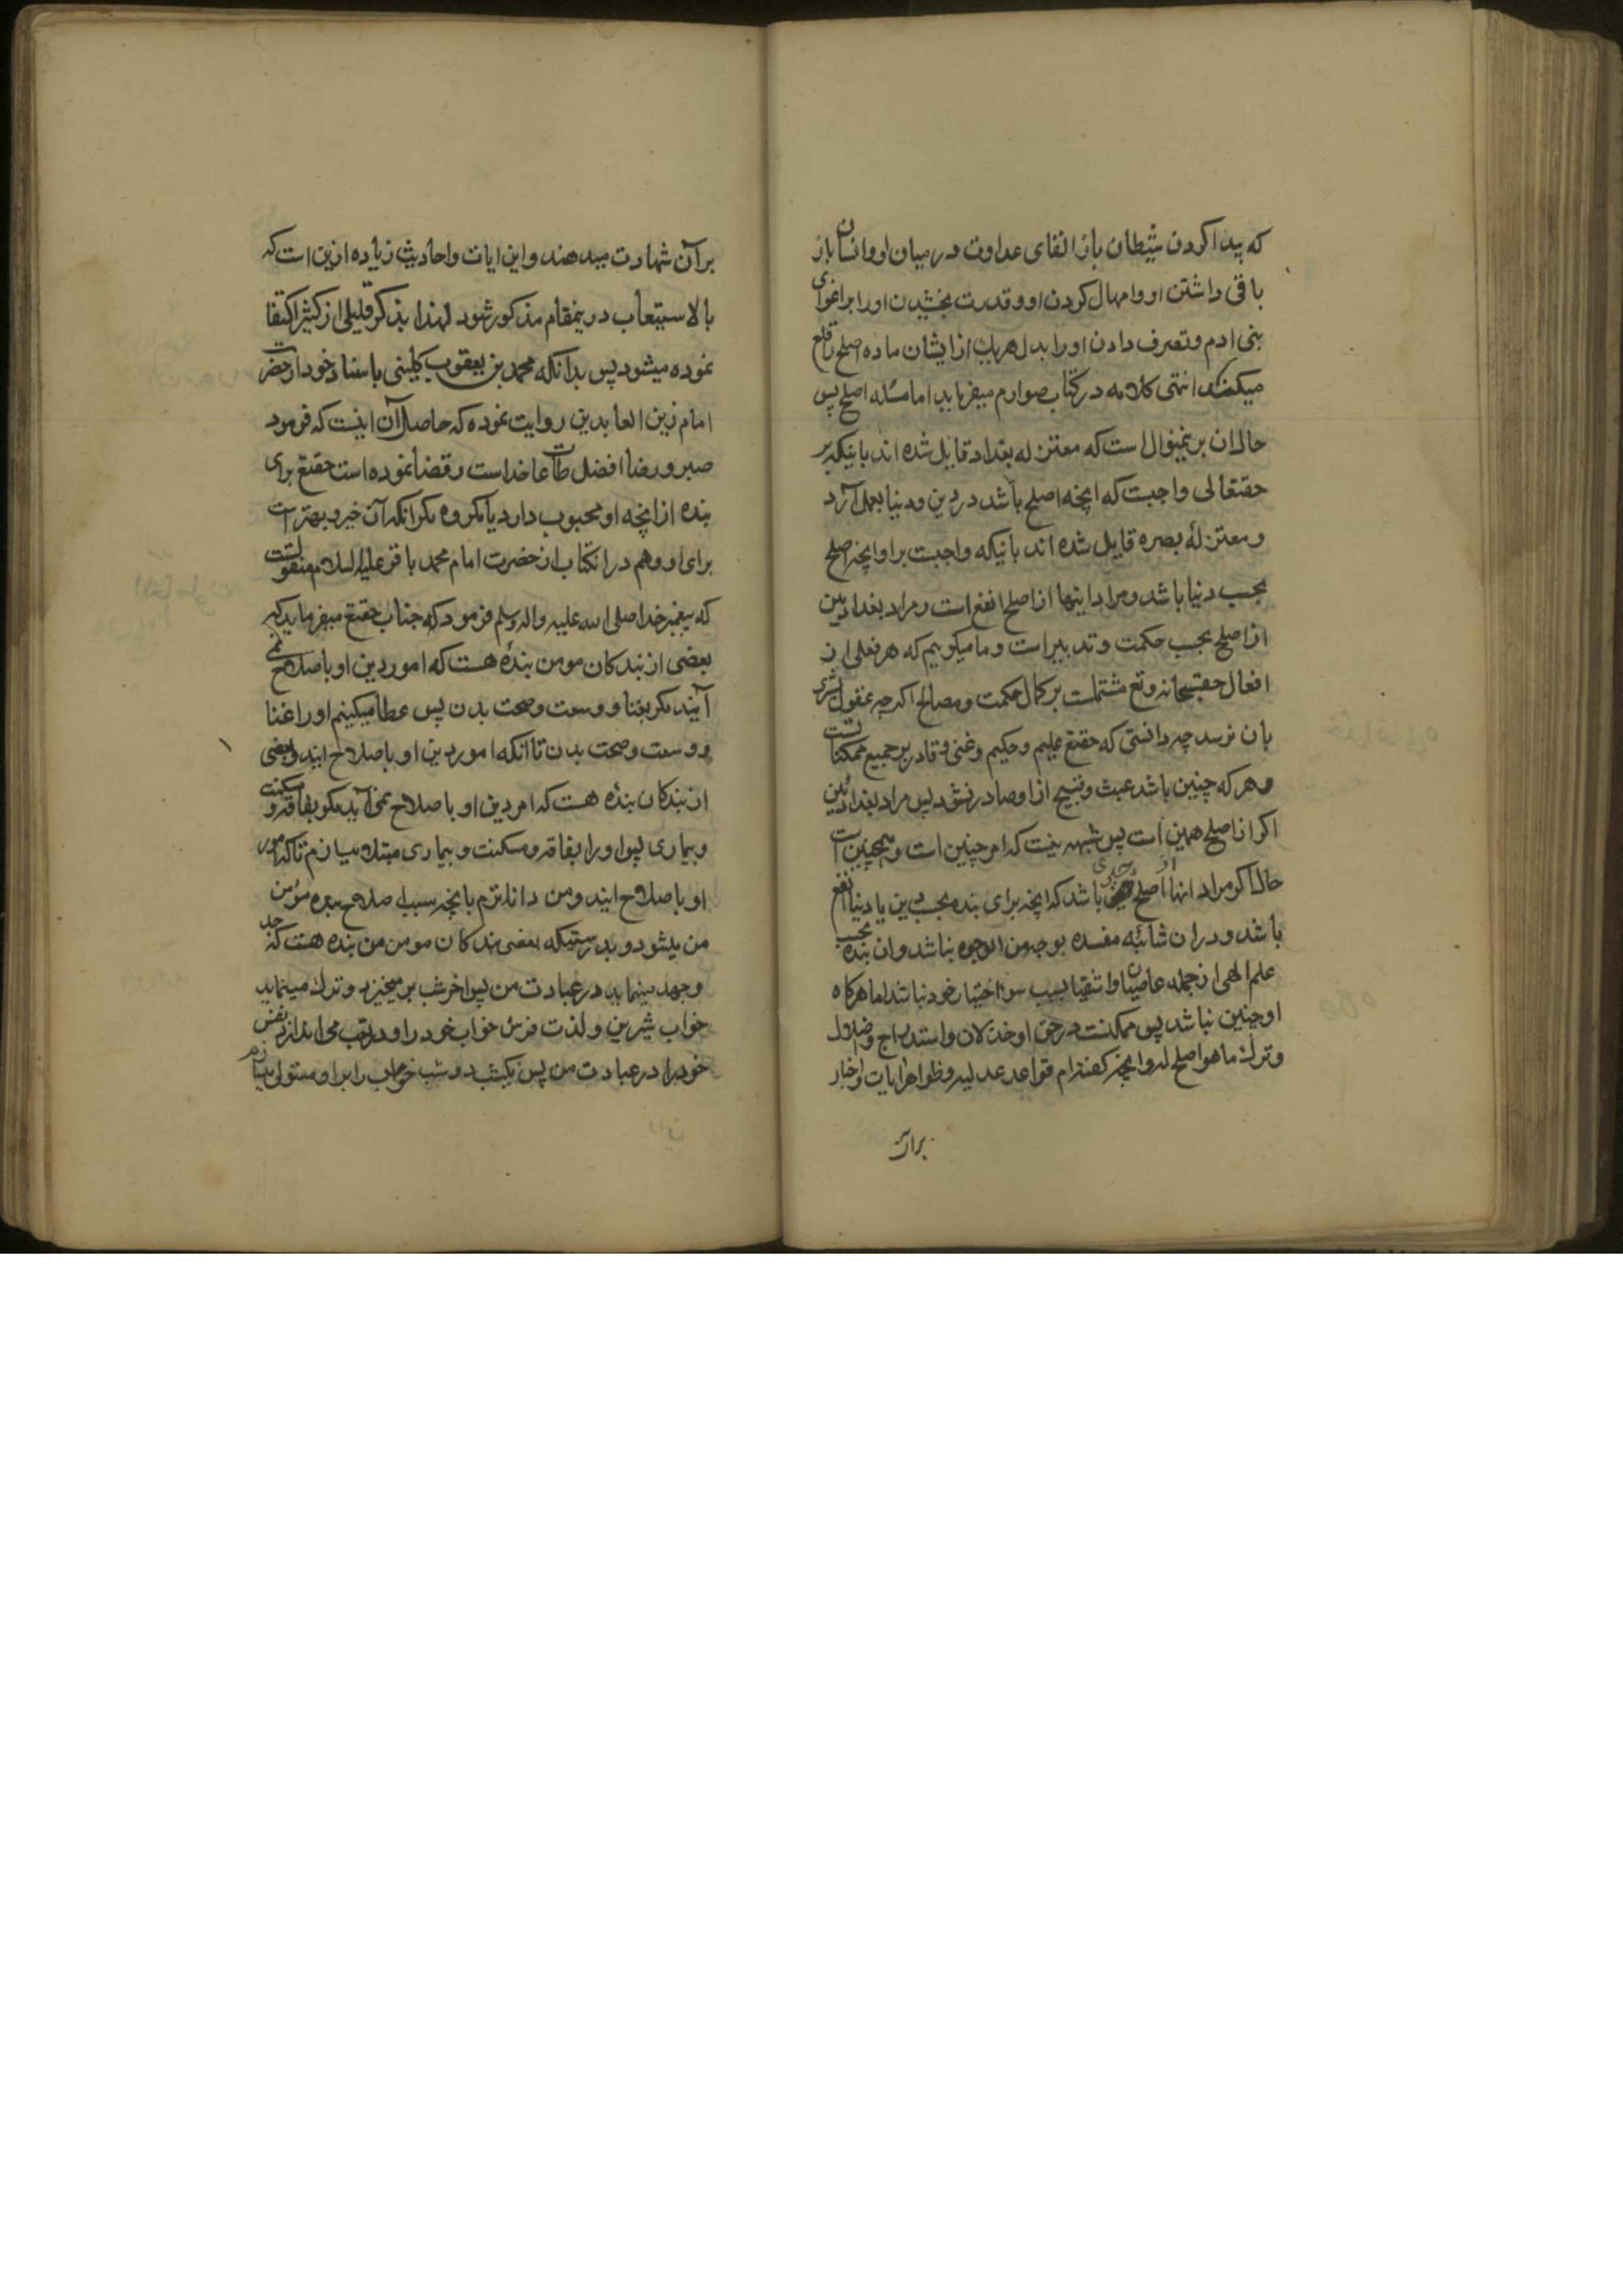 که پیدا کردن شیطان باز القای عداوت در میان او و انسان باز
باقی داشتن او و امهال کردن او و قدرت بخشیدن او را بر اغوای
بنی ادم و تصرف دادن او را بدل هر یک از ایشان ماده اصلح را قلع
میکند انتهی کلامه در کتاب صوارم میفرماید اما مسئله اصلح پس
حال ان برینمنوال است که معتزله بغداد قایل شده اند باینکه بر
حقتعالی واجبت که انچه اصلح باشد در دین و دنیا بعمل آرد
و معتزلهٔ بصره قایل شده اند باینکه واجبت بر او انچه اصلح
بحسب دنیا باشد و مراد اینها از اصلح انفع است و مراد بغدادیین
از اصلح بحسب حکمت و تدبیر است و ما میکوییم که هر فعلی از
افعال حقسبحانه وتع مشتملست بر کمال حکمت و مصالح اکرچه عقول بشری
بان نرسد چه دانستی که حقتع علیم و حکیم و غنی و قادر بر جمیع ممکنا تست
و هر که چنین باشد عبث و قبیح از او صادر نشود پس مراد بغدادئین
اکر از اصلح همین است پس شبهه نیست که امر چنین است و همچنین است
حال اکر مراد انها از اصلح باشد که انچه برای بنده بحسب دین یا دنیا انفع
باشد و دران شائبه مفسده بوجه من الوجوه نباشد و ان بنده بحسب
علم الهی از جمله عاصیان و اشقیا بسبب سوء اختیار خود نباشد اما هرکاه
او چنین نباشد پس ممکنست در حق او خذلان و استدراج و اضلال
و ترک ما هو اصلح له و انچه کفتم ام قواعد عدلیه و ظواهر ایات و اخبار
بران
برآن شهادت میدهند و این ایات و احادیث زیاده ازین است که
بالاستیعاب درینمقام مذکور شود لهذا بذکر قلیلی از کثیر اکتفا
نموده میشود پس بدانکه محمد بن یعقوب کلینی باسناد خود از حضرت
امام زین العابدین روایت نموده که حاصل آن اینست که فرمود
صبر و رضا افضل طاعات خداست و قضا نموده است حقتع برای
بنده از انچه او محبوب دارد یا مکروه مکر انکه آن خیر و بهتر است
برای او و هم در انکتاب از حضرت امام محمد باقر علیه السلام منقولست
که پیغمبر خدا صلی الله علیه واله وسلم فرمود که جناب حقتع میفرماید که
بعضی از بندکان مومن بندهٔ هست که امور دین او باصلاح نمی
آیند مکر بغنا و وسعت و صحت بدن پس عطا میکینم او را غنا
و وسعت و صحت بدن تا آنکه امور دین او باصلاح ایند و بعضی
از بندکان بندهٔ هست که امر دین او باصلاح نمی آید مکر بفاقه و مسکنت
و بیماری پس او را بفاقه و مسکنت و بیماری مبتلا میسازم تا که امور
او باصلاح ایند و من داناترم بانچه سبب صلاح بنده مؤمن
من میشود و بدرستیکه بعضی بندکان مومن من بنده هست که جد
و جهد مینماید در عبادت من پس اخر شب برمیخیزد و ترک مینماید
خواب شیرین و لذت فرش خواب خود را و در تعب می اندازد نفس
خود را در عبادت من پس یکشب دو شب خواب را بر او مستولی میسازم